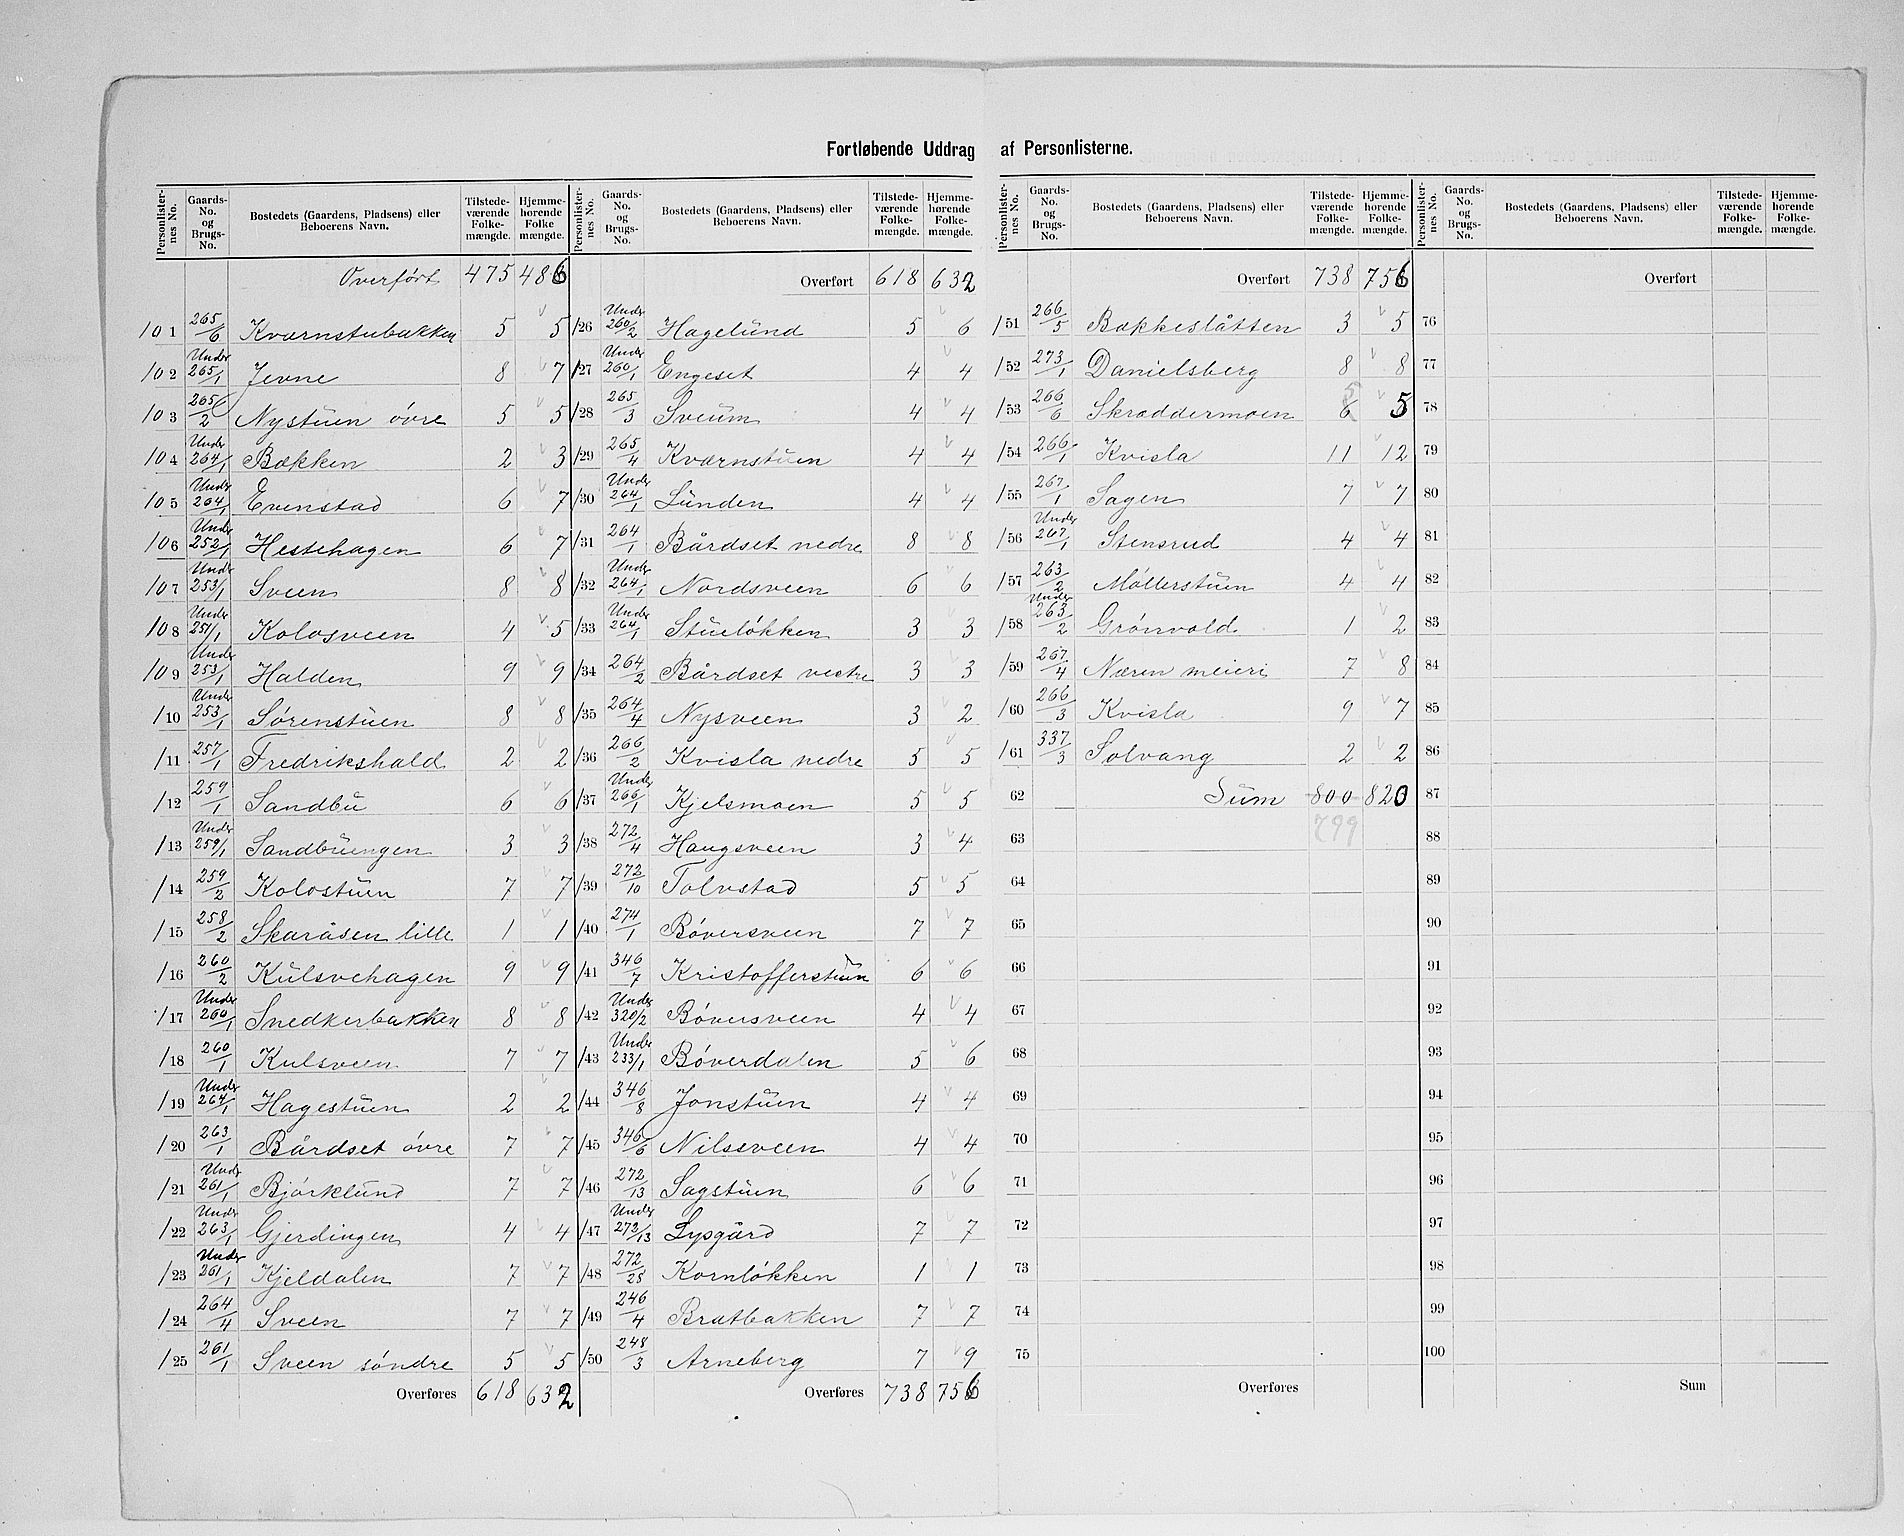 Fortløbende Uddrag af Personlisterne.
Personlisternes No. | Gaards-No. og Brugs-No. | Bostedets (Gaardens, Pladsens) eller Beboerens Navn. | Tilstedeværende Folkemængde. | Hjemmehørende Folkemængde.
Overført 475 486
101 265/6 Kværnstubakken 5 5
102 Under 265/1 Jevne 8 7
103 265/2 Nystuen øvre 5 5
104 Under 264/1 Bækken 2 3
105 Under 264/1 Evenstad 6 7
106 Under 252/1 Hestehagen 6 7
107 Under 253/1 Sveen 8 8
108 Under 251/1 Kolosveen 4 5
109 Under 253/1 Halden 9 9
110 Under 253/1 Sørenstuen 8 8
111 257/1 Fredrikshald 2 2
112 259/1 Sandbu 6 6
113 Under 259/1 Sandbuengen 3 3
114 259/2 Kolostuen 7 7
115 258/2 Skaråsen lille 1 1
116 260/2 Kulsvehagen 9 9
117 Under 260/1 Snedkerbakken 8 8
118 260/1 Kulsveen 7 7
119 Under 264/1 Hagestuen 2 2
120 263/1 Bårdset øvre 7 7
121 Und 261/1 Bjørklund 7 7
122 Under 263/1 Gjerdingen 4 4
123 Under 261/1 Kjeldalen 7 7
124 264/4 Sveen 7 7
125 261/1 Sveen søndre 5 5
Overføres 618 632
Personlisternes No. | Gaards-No. og Brugs-No. | Bostedets (Gaardens, Pladsens) eller Beboerens Navn. | Tilstedeværende Folkemængde. | Hjemmehørende Folkemængde.
Overført 618 632
126 Under 260/2 Hagelund 5 6
127 Under 260/1 Engeset 4 4
128 265/3 Sveum 4 4
129 265/4 Kværnstuen 4 4
130 Under 264/1 Lunden 4 4
131 264/1 Bårdset nedre 8 8
132 Under 264/1 Nordsveen 6 6
133 Under 264/1 Stueløkken 3 3
134 264/2 Bårdset vestre 3 3
135 264/4 Nysveen 3 2
136 266/2 Kvisla nedre 5 5
137 Under 266/1 Kjelsmoen 5 5
138 272/4 Haugsveen 3 4
139 272/10 Tolvstad 5 5
140 274/1 Bøversveen 7 7
141 346/7 Kristofferstuen 6 6
142 Under 320/2 Bøversveen 4 4
143 Under 233/1 Bøverdalen 5 6
144 346/8 Jonstuen 4 4
145 346/6 Nilsveen 4 4
146 272/13 Sagstuen 6 6
147 Under 272/13 Lysgård 7 7
148 272/28 Kornløkken 1 1
149 246/4 Bratbakken 7 7
150 248/3 Arneberg 7 9
Overføres 738 756
Personlisternes No. | Gaards-No. og Brugs-No. | Bostedets (Gaardens, Pladsens) eller Beboerens Navn. | Tilstedeværende Folkemængde. | Hjemmehørende Folkemængde.
Overført 738 756
151 266/5 Bækkeslåtten 3 5
152 273/1 Danielsberg 8 8
153 266/6 Skræddermoen 6 5 5
154 266/1 Kvisla 11 12
155 267/1 Sagen 7 7
156 Under 267/1 Stensrud 4 4
157 263/2 Møllerstuen 4 4
158 Under 263/2 Grønvold 1 2
159 267/4 Næren meieri 7 8
160 266/3 Kvisla 9 7
161 337/3 Solvang 2 2
62 Sum 800 820
63 799
64
65
66
67
68
69
70
71
72
73
74
75
Overføres
Personlisternes No. | Gaards-No. og Brugs-No. | Bostedets (Gaardens, Pladsens) eller Beboerens Navn. | Tilstedeværende Folkemængde. | Hjemmehørende Folkemængde.
Overført
76
77
78
79
80
81
82
83
84
85
86
87
88
89
90
91
92
93
94
95
96
97
98
99
100
Sum